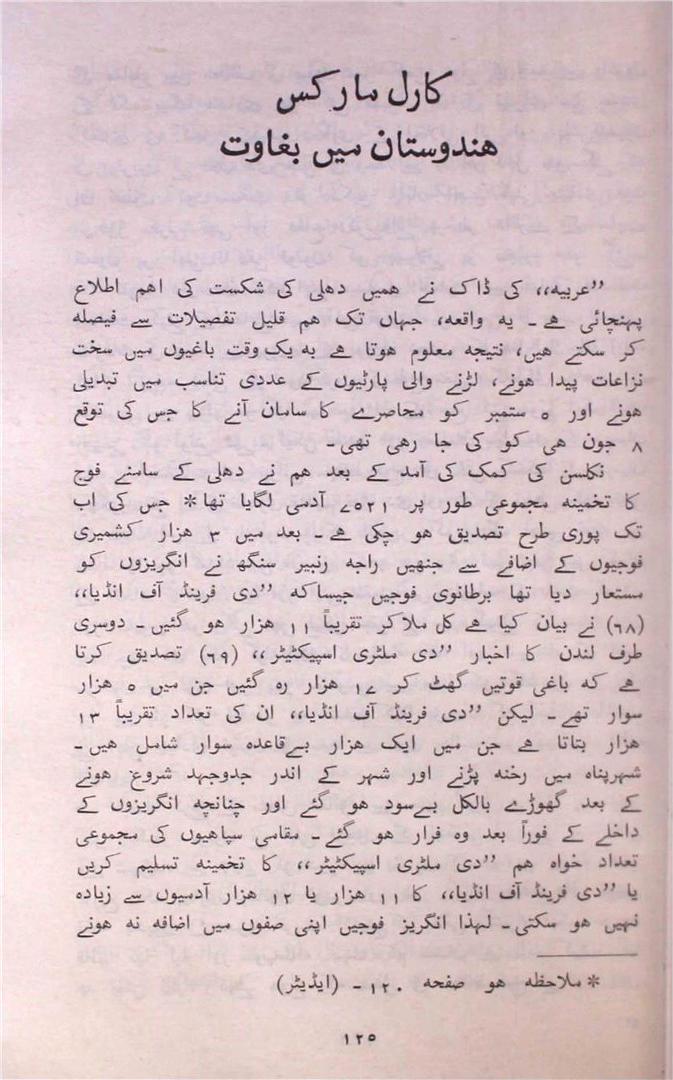 کارل مارکس
ھندوستان میں بغاوت
’’عربیہ،، کی ڈاک نے ھمیں دھلی کی شکست کی اھم اطلاع
پہنچائی ھے۔ یہ واقعہ، جہاں تک ھم قلیل تفصیلات سے فیصلہ
کر سکتے ھیں، نتیجہ معلوم ھوتا ھے بہ یک وقت باغیوں میں سخت
نزاعات پیدا ھونے، لڑنے والی پارٹیوں کے عددی تناسب میں تبدیلی
ھونے اور ۵ ستمبر کو محاصرے کا سامان آنے کا جس کی توقع
۸ جون ھی کو کی جا رھی تھی۔
نکلسن کی کمک کی آمد کے بعد ھم نے دھلی کے سامنے فوج
کا تخمینہ مجموعی طور پر ۷۵۲۱ آدمی لگایا تھا* جس کی اب
تک پوری طرح تصدیق ھو چکی ھے۔ بعد میں ۳ ھزار کشمیری
فوجیوں کے اضافے سے جنھیں راجہ رنبیر سنگھ نے انگریزوں کو
مستعار دیا تھا برطانوی فوجیں جیساکہ ’’دی فرینڈ آف انڈیا،،
(۶۸) نے بیان کیا ھے کل ملا کر تقریباً ۱۱ ھزار ھو گئیں۔ دوسری
طرف لندن کا اخبار ’’دی ملٹری اسپیکٹیٹر،، (۶۹) تصدیق کرتا
ھے کہ باغی قوتیں گھٹ کر ۱۷ ھزار رہ گئیں جن میں ۵ ھزار
سوار تھے۔ لیکن ’’دی فرینڈ آف انڈیا،، ان کی تعداد تقریباً ۱۳
ھزار بتاتا ھے جن میں ایک ھزار بےقاعدہ سوار شامل ھیں۔
شہرپناہ میں رخنہ پڑنے اور شہر کے اندر جدوجہد شروع ھونے
کے بعد گھوڑے بالکل بےسود ھو گئے اور چنانچہ انگریزوں کے
داخلے کے فوراً بعد وہ فرار ھو گئے۔ مقامی سپاھیوں کی مجموعی
تعداد خواہ ھم ’’دی ملٹری اسپیکٹیٹر،، کا تخمینہ تسلیم کریں
یا ’’دی فرینڈ آف انڈیا،، کا ۱۱ ھزار یا ۱۲ ھزار آدمیوں سے زیادہ
نہیں ھو سکتی۔ لہذا انگریز فوجیں اپنی صفوں میں اضافہ نہ ھونے
* ملاحظہ ھو صفحہ ۱۲۰۔ (ایڈیٹر)
۱۲۵